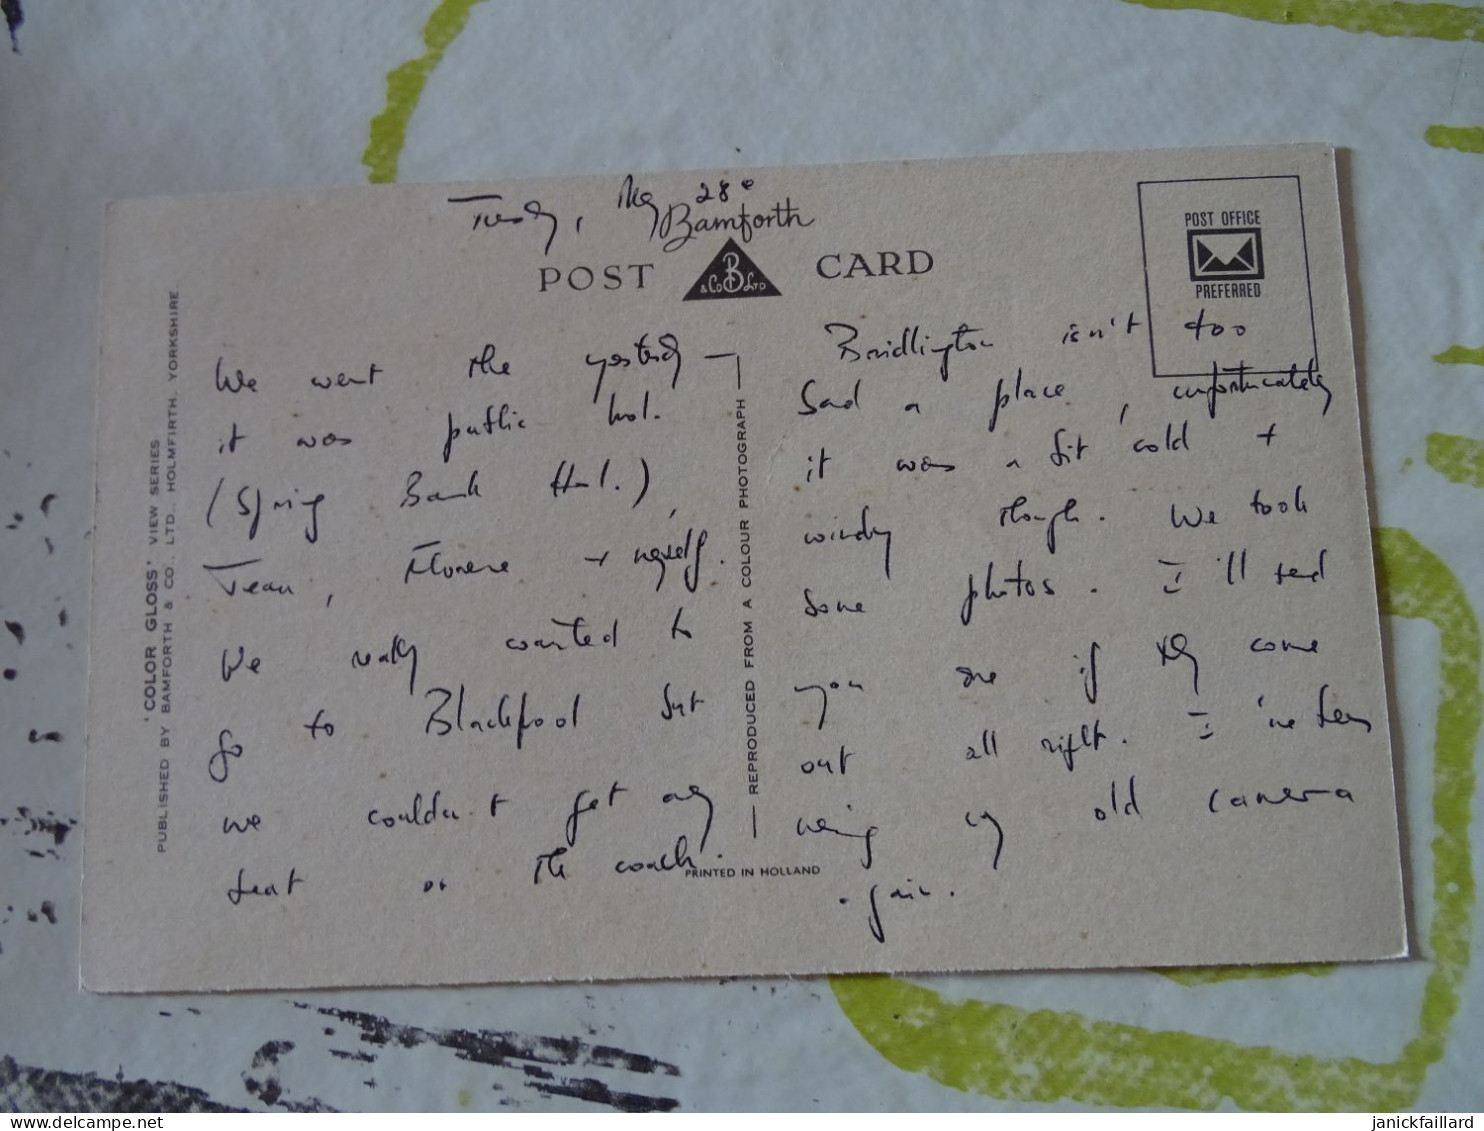 Tuesday, May 28e
Bamforth
POST CARD
B
& Co LTD
POST OFFICE
PREFERRED
'COLOR GLOSS' VIEW SERIES
PUBLISHED BY BAMFORTH & CO. LTD., HOLMFIRTH, YORKSHIRE
We went the yesterday —
it was public hol.
(Spring Bank Hol.),
Jean, Florence + myself.
We really wanted to
go to Blackpool but
we couldn't get any
seat on the coach.
— REPRODUCED FROM A COLOUR PHOTOGRAPH —
PRINTED IN HOLLAND
Bridlington isn't too
bad a place, unfortunately
it was a bit cold +
windy though. We took
some photos. I'll send
you one if they come
out all right. I've been
using my old camera
again.
janickfaillard